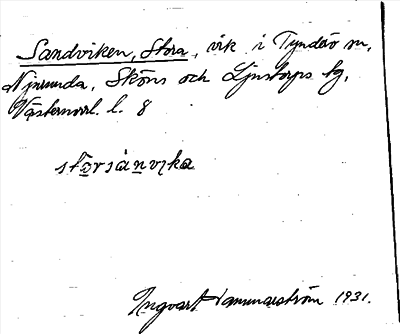 Sandviken, Stora, vik i Tynderö sn,
Njurunda, Sköns och Ljustorps tg,
Västernorrl. l. 8
stɷrsànvika
Ingvart Hammarström 1931.